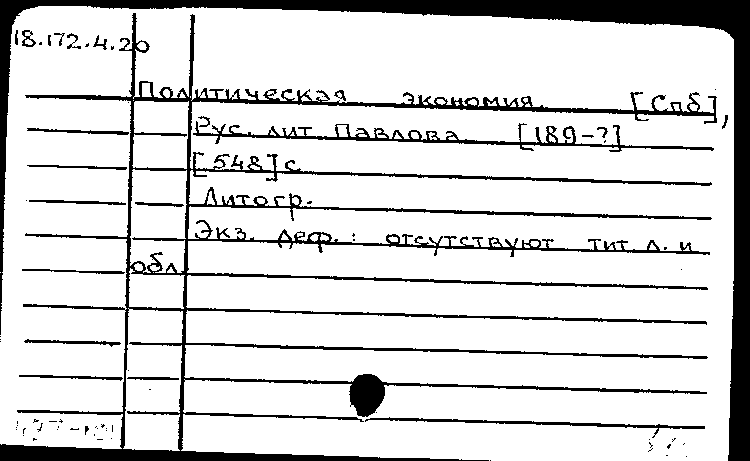 18.172.4.20
Политическая экономия. [Спб],
Рус. лит. Павлова. [189-?]
[548] с.
Литогр.
Экз. деф.: отсутствуют тит. л. и
обл.